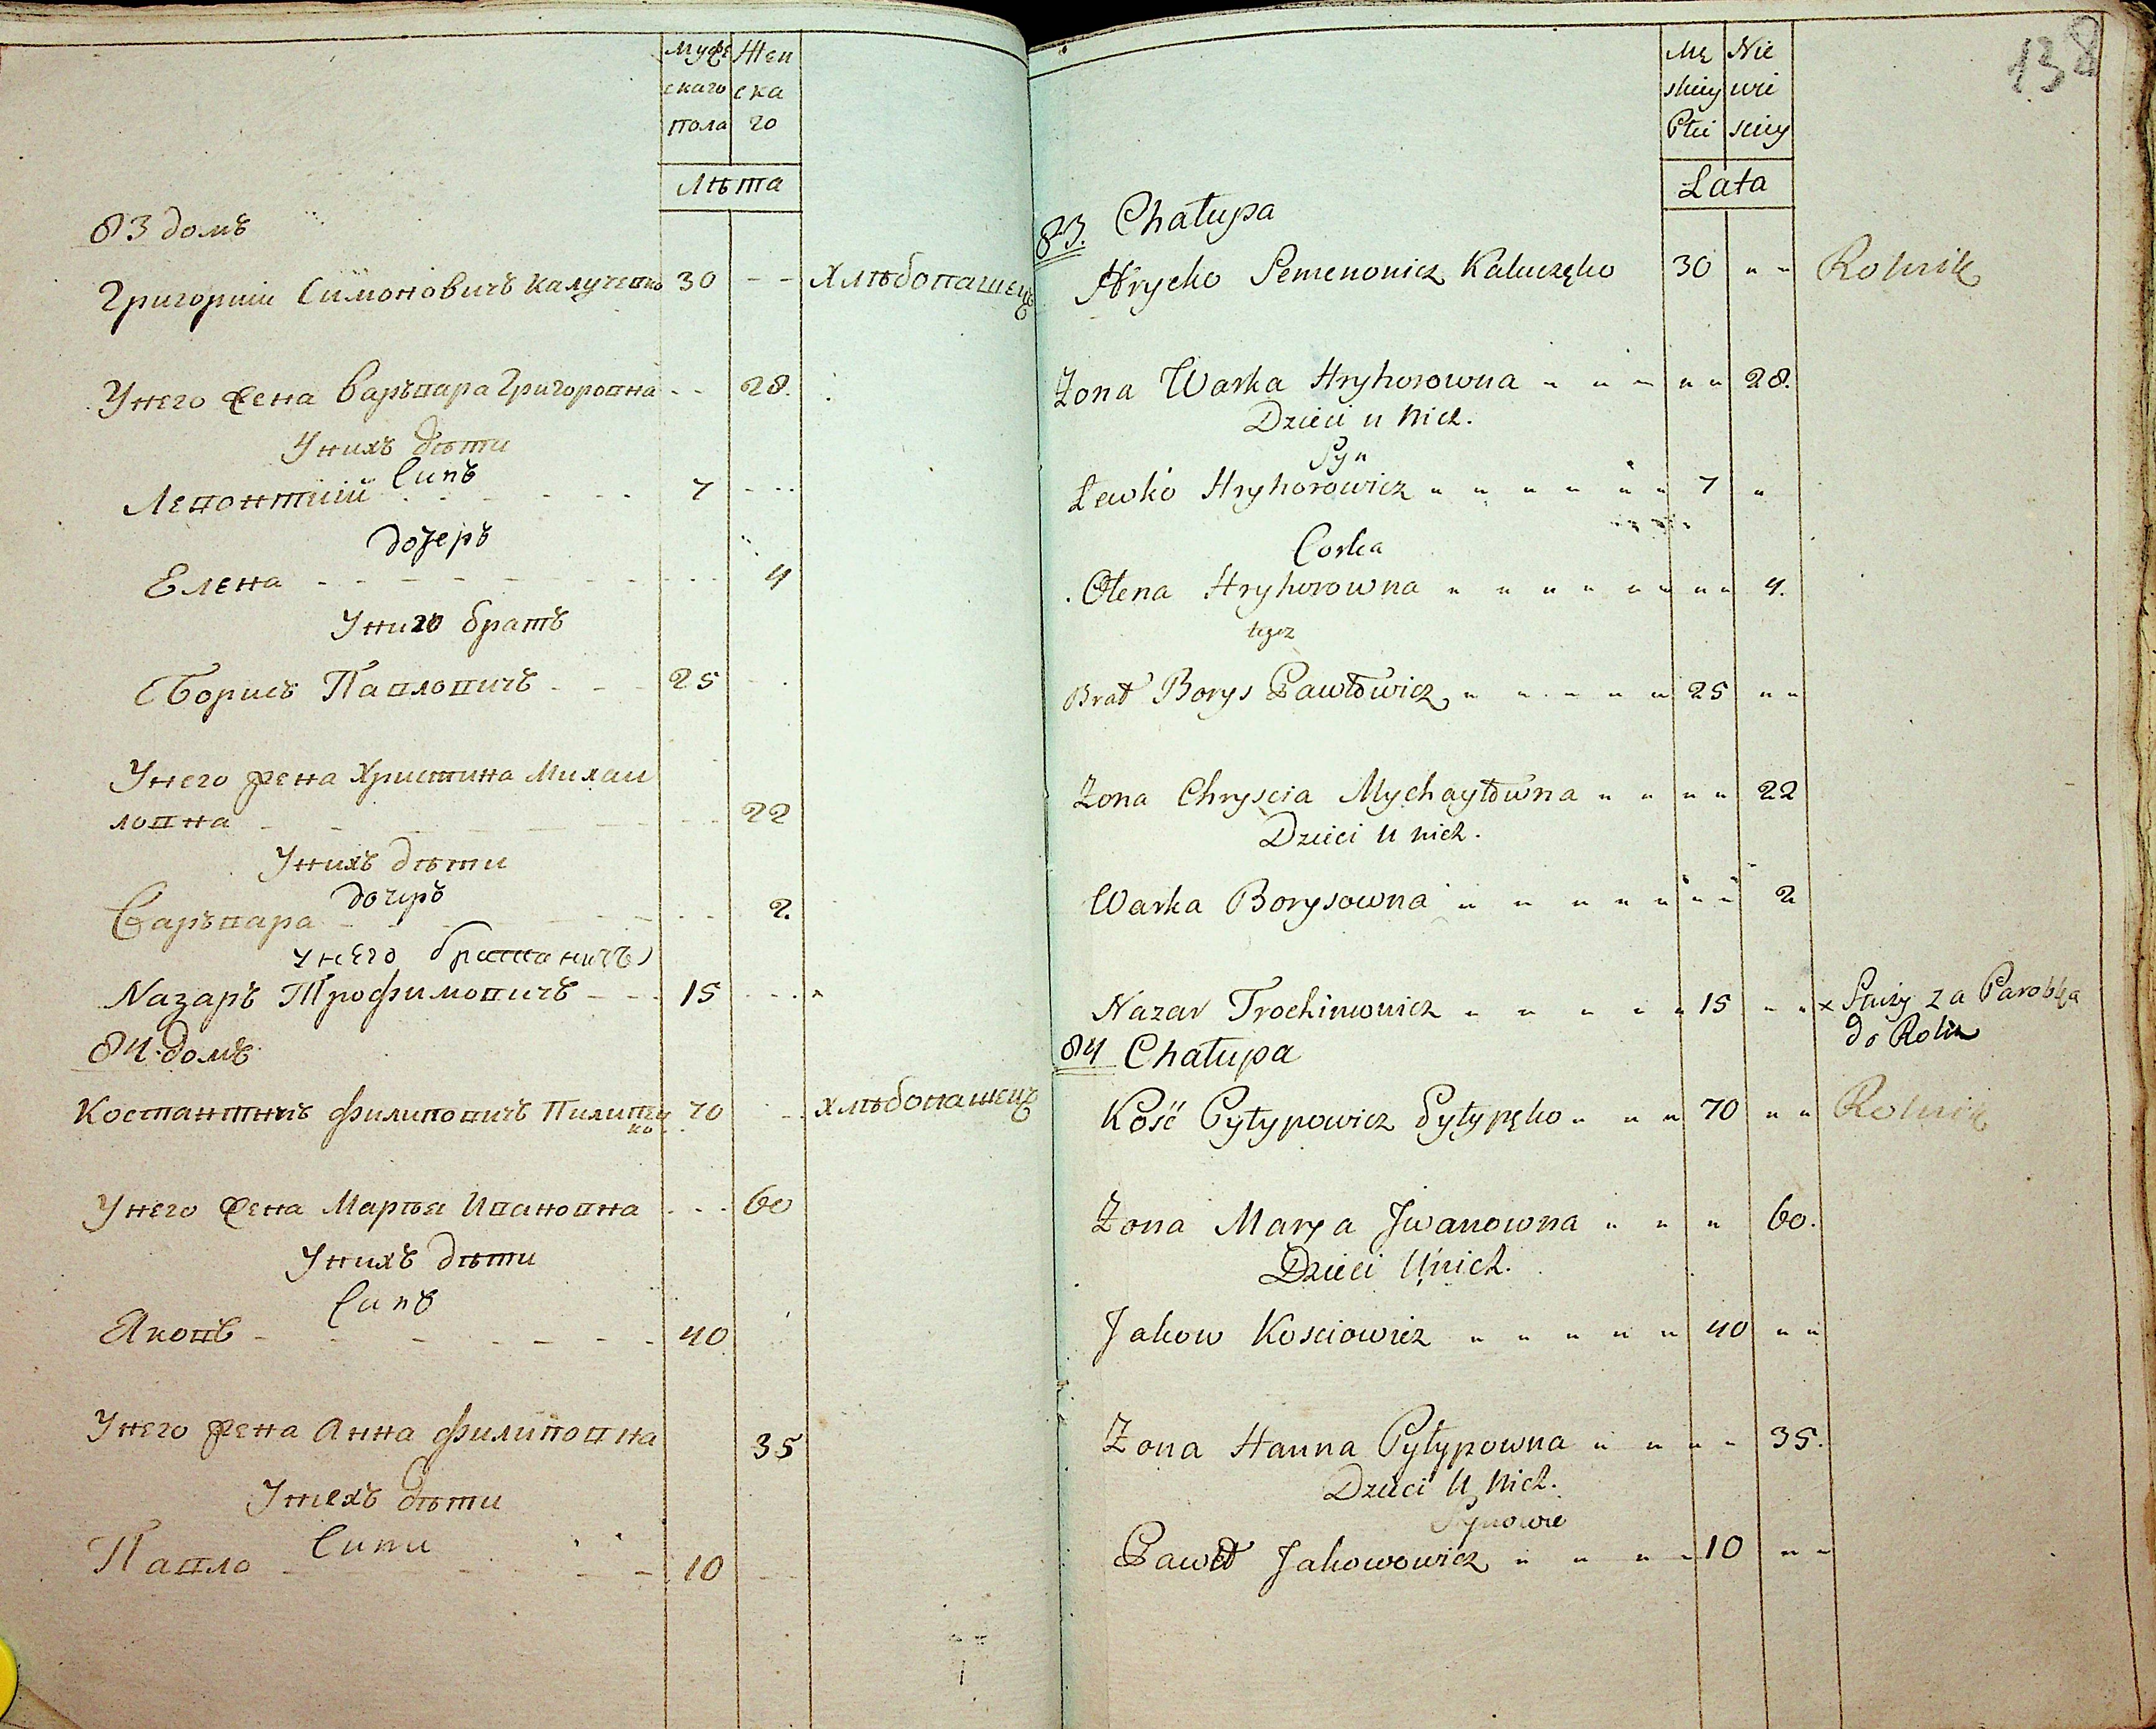 Мужескаго пола
Женскаго
Лѣта
83 домъ
Григорий Симоновичъ Калученко 30 - - Хлѣбопашецъ
У него жена Варъвара Григоровна - - 28.
У нихъ дѣти
Синъ
Левонтий 7 - -
дочеръ
Елена 4
У ниго братъ
Борисъ Павловичъ 25
У него жена Христина Михаи
ловна 22
У нихъ дѣти
дочиръ
Варъвара 2.
У него братаничъ
Назаръ Трофимовичъ 15
84. домъ
Костантинъ Филиповичъ Пилипенко 70 Хлѣбопашецъ
У него жена Маръя Ивановна 60
У нихъ дѣти
Синъ
Яковъ 40
У него жена Анна Филиповна 35
У нехъ дѣти
Сини
Павло 10
138
Męskiey Płci
Niewiesciey
Lata
83. Chałupa
Hrycko Semenowicz Kaluczęko 30 Rolnik
Zona Warka Hryhorowna 28.
Dzieci u nich.
Syn
Lewko Hryhorowicz 7
Corka
Ołena Hryhorowna 4.
tegoz
Brat Borys Pawłowicz 25
Zona Chryscia Mychayłowna 22
Dzieci u nich.
Warka Borysowna 2
Nazar Trochimowicz 15 x Służy za Parobka
do Roli
84 Chałupa
Kość Pyłypowicz Pyłypęko 70 Rolnik
Zona Marya Jwanowna 60.
Dzieci U nich.
Jakow Kosciowicz 40
Zona Hanna Pyłypowna 35.
Dzieci U nich.
Synowie
Paweł Jakowowicz 10